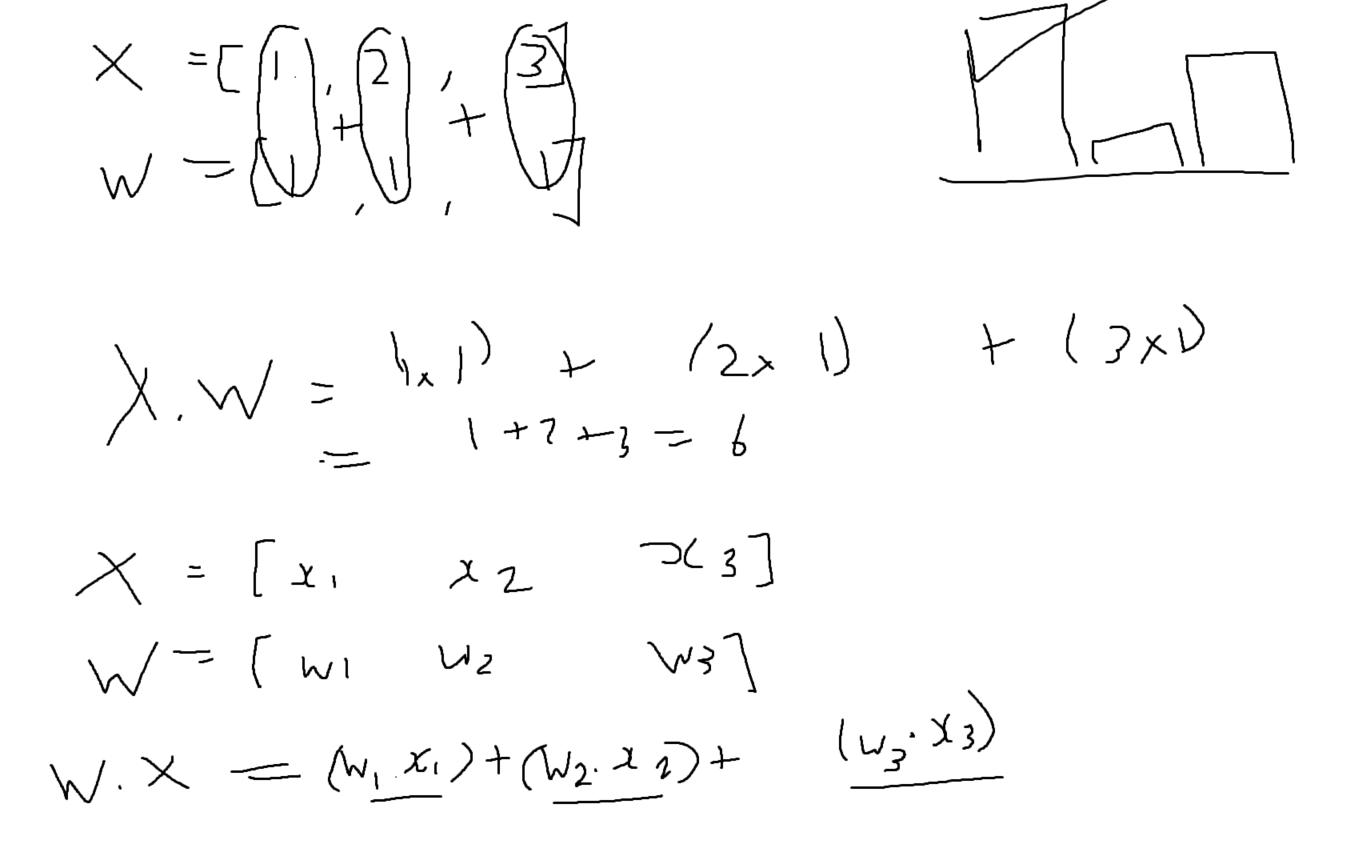 X = [1, 2, 3]
+ +
W = [1, 1, 1]
X.W = (1x1) + (2x1) + (3x1)
= 1+2+3 = 6
X = [x1 x2 x3]
W = [w1 w2 w3]
W.X = (w1.x1)+(w2.x2)+(w3.x3)